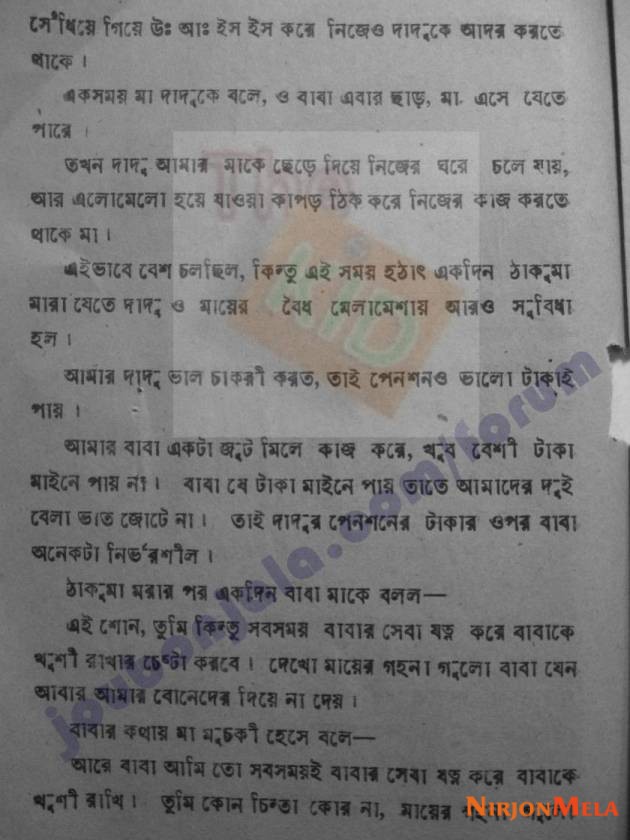 সেঁধিয়ে গিয়ে উঃ আঃ ইস ইস করে নিজেও দাদুকে আদর করতে
থাকে ।
একসময় মা দাদুকে বলে, ও বাবা এবার ছাড়, মা. এসে যেতে
পারে ।
তখন দাদু আমার মাকে ছেড়ে দিয়ে নিজের ঘরে চলে যায়,
আর এলোমেলো হয়ে যাওয়া কাপড় ঠিক করে নিজের কাজ করতে
থাকে মা ।
এইভাবে বেশ চলছিল, কিন্তু এই সময় হঠাৎ একদিন ঠাকুমা
মারা যেতে দাদু ও মায়ের বৈধ মেলামেশায় আরও সুবিধা
হল ।
আমার দাদু ভাল চাকরী করত, তাই পেনশনও ভালো টাকাই
পায় ।
আমার বাবা একটা জুট মিলে কাজ করে, খুব বেশী টাকা
মাইনে পায় না । বাবা যে টাকা মাইনে পায় তাতে আমাদের দুই
বেলা ভাত জোটে না । তাই দাদুর পেনশনের টাকার ওপর বাবা
অনেকটা নির্ভরশীল ।
ঠাকুমা মরার পর একদিন বাবা মাকে বলল—
এই শোন, তুমি কিন্তু সবসময় বাবার সেবা যত্ন করে বাবাকে
খুশী রাখার চেষ্টা করবে । দেখো মায়ের গহনা গুলো বাবা যেন
আবার আমার বোনেদের দিয়ে না দেয় ।
বাবার কথায় মা মুচকী হেসে বলে—
আরে বাবা আমি তো সবসময়ই বাবার সেবা যত্ন করে বাবাকে
খুশী রাখি । তুমি কোন চিন্তা কোর না, মায়ের
The
KiD
joubonjala.com/forum
NIRJONMELA